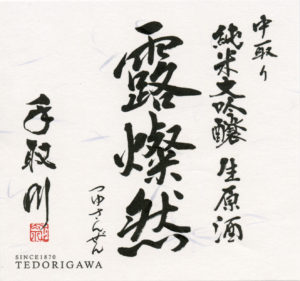 中取り
純米大吟醸 生原酒
露燦然
つゆさんぜん
手取川
SINCE1870
TEDORIGAWA